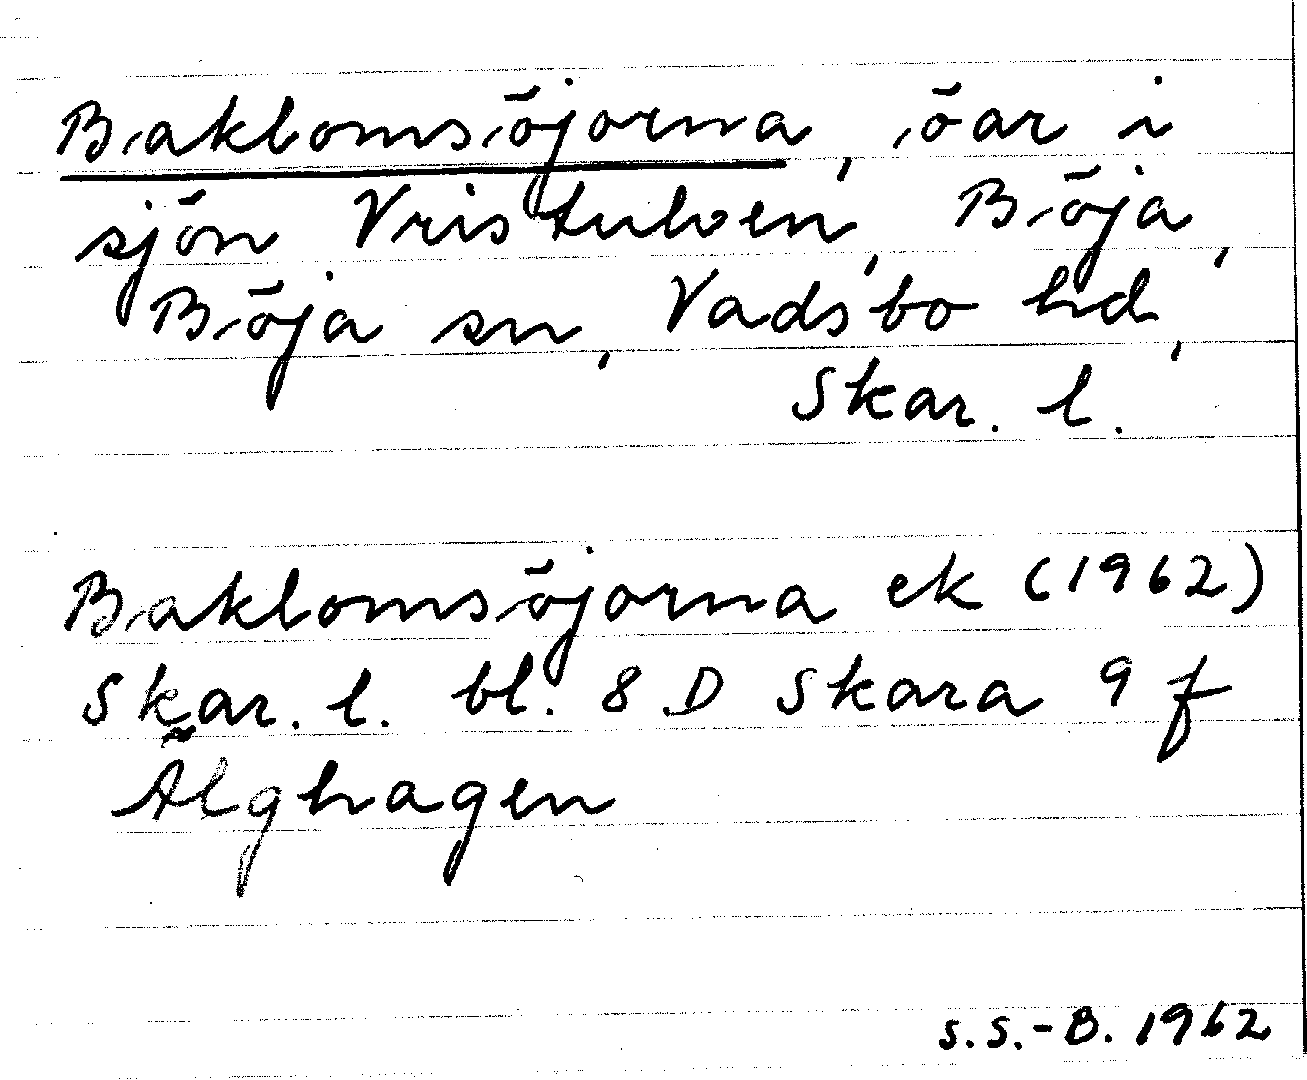 Baklomsöjorna, öar i
sjön Vristulven, Böja,
Böja sn, Vadsbo hd,
Skar. l.
Baklomsöjorna ek (1962)
Skar. l. bl. 8 D Skara 9 f
Älghagen
S.S.-B. 1962